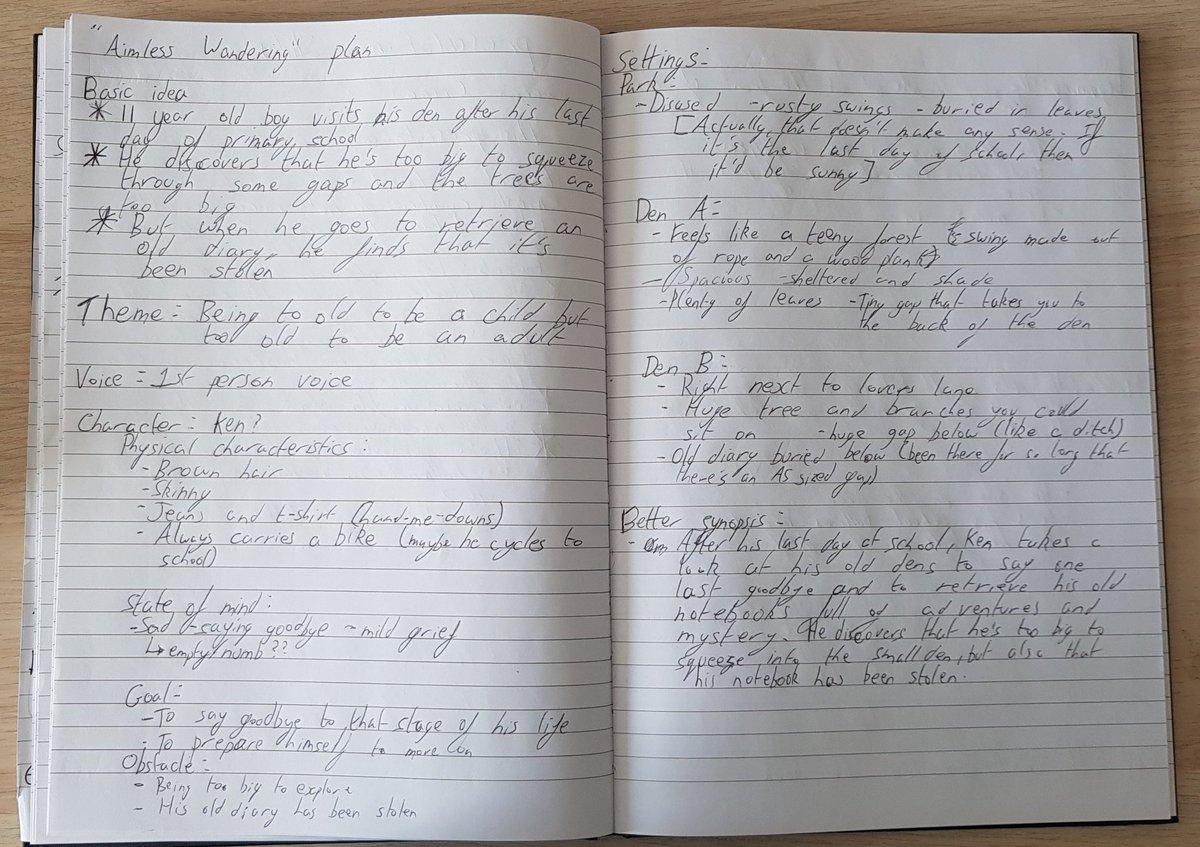 "Aimless Wandering" plan
Basic idea
* 11 year old boy visits his den after his last
day of primary school
* He discovers that he's too big to squeeze
through some gaps and the trees are
too big
* But when he goes to retrieve an
old diary, he finds that it's
been stolen
Theme = Being to old to be a child but
too old to be an adult
Voice = 1st person voice
Character = Ken?
Physical characteristics:
- Brown hair
- Skinny
- Jeans and t-shirt (hand-me-downs)
- Always carries a bike (maybe he cycles to
school)
State of mind:
- Sad - saying goodbye - mild grief
↳ empty/numb??
Goal =
- To say goodbye to that stage of his life
- To prepare himself to move on
Obstacle =
- Being too big to explore
- His old diary has been stolen
Settings:
Park:
- Disused - rusty swings - buried in leaves
[Actually, that doesn't make any sense. If
it's the last day of school, then
it'd be sunny]
Den A:
- Feels like a teeny forest (swing made out
of rope and a wood plank)
- Spacious - sheltered and shade
- Plenty of leaves - Tiny gap that takes you to
the back of the den
Den B:
- Right next to lovers lane
- Huge tree and branches you could
sit on - huge gap below (like a ditch)
- Old diary buried below (been there for so long that
there's an A5 sized gap)
Better synopsis:
- After his last day at school, Ken takes a
look at his old dens to say one
last goodbye and to retrieve his old
notebooks full of adventures and
mystery. He discovers that he's too big to
squeeze into the small den, but also that
his notebook has been stolen.